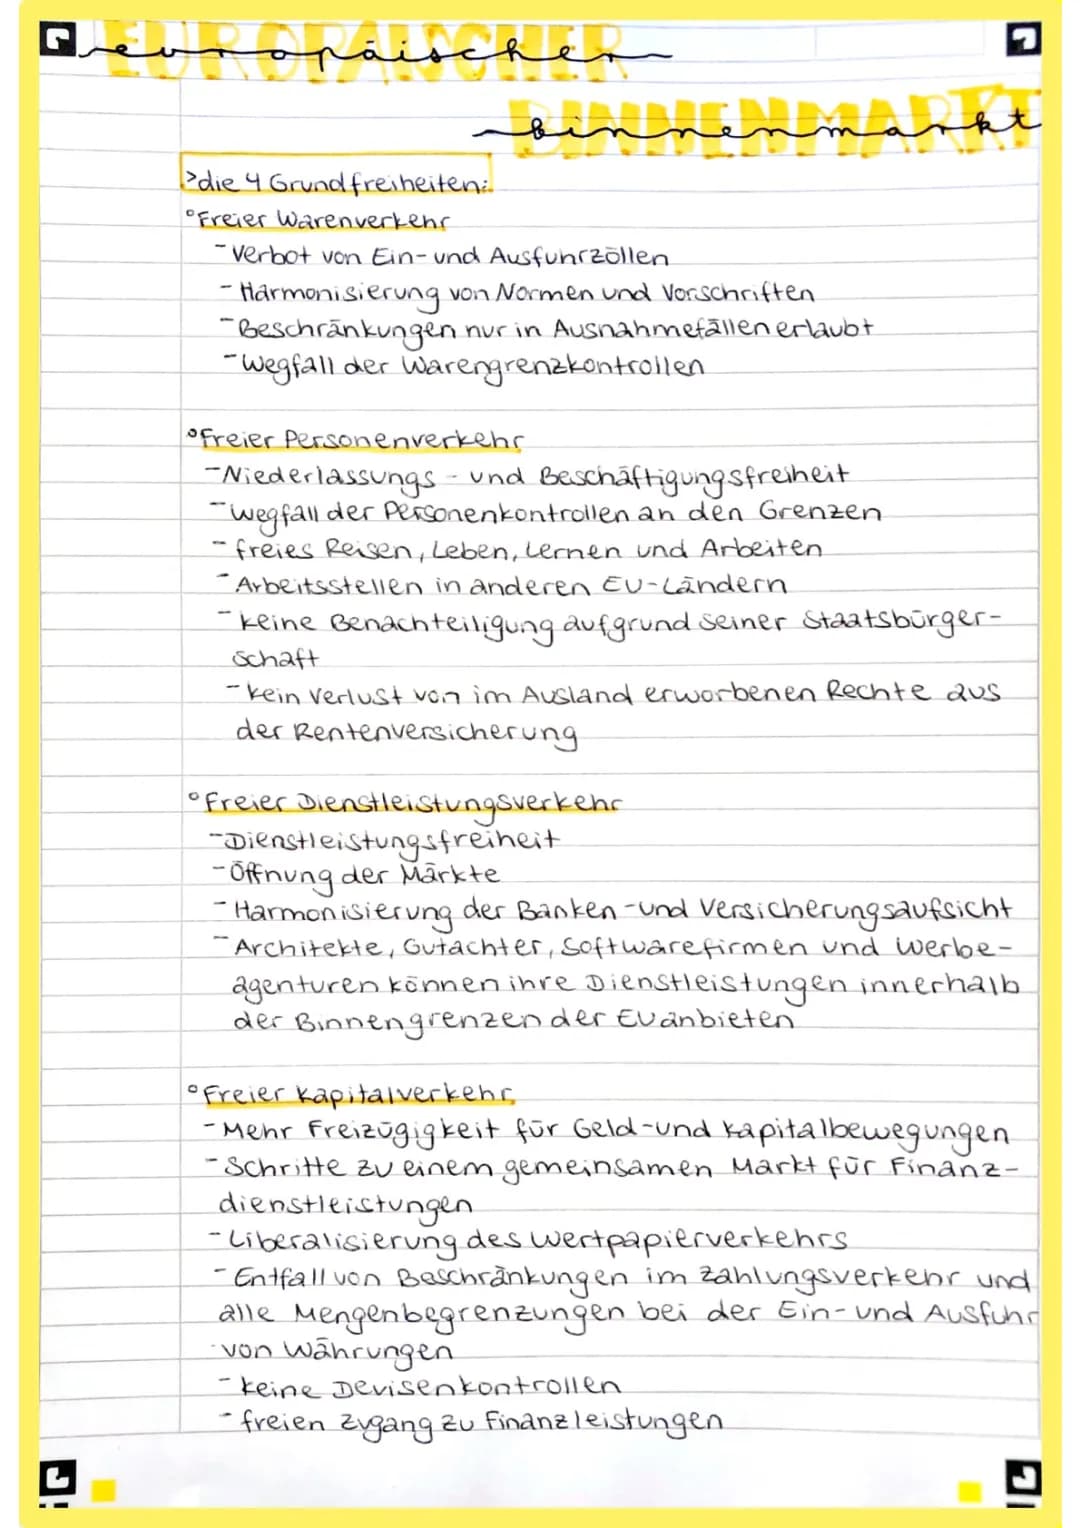 EUROPÄISCHER
europäischer
BINNENMARKT
binnenmarkt
>die 4 Grundfreiheiten:
°Freier Warenverkehr
-Verbot von Ein- und Ausfuhrzöllen
-Harmonisierung von Normen und Vorschriften
-Beschränkungen nur in Ausnahmefällen erlaubt
-Wegfall der Warengrenzkontrollen
°Freier Personenverkehr
-Niederlassungs- und Beschäftigungsfreiheit
-Wegfall der Personenkontrollen an den Grenzen
-freies Reisen, Leben, Lernen und Arbeiten
-Arbeitsstellen in anderen EU-Ländern
-keine Benachteiligung aufgrund seiner Staatsbürger-
schaft
-kein Verlust von im Ausland erworbenen Rechte aus
der Rentenversicherung
°Freier Dienstleistungsverkehr
-Dienstleistungsfreiheit
-Öffnung der Märkte
-Harmonisierung der Banken-und Versicherungsaufsicht
-Architekte, Gutachter, Softwarefirmen und Werbe-
agenturen können ihre Dienstleistungen innerhalb
der Binnengrenzen der EU anbieten
°Freier Kapitalverkehr
-Mehr Freizügigkeit für Geld-und Kapitalbewegungen
-Schritte zu einem gemeinsamen Markt für Finanz-
dienstleistungen
-Liberalisierung des Wertpapierverkehrs
-Entfall von Beschränkungen im Zahlungsverkehr und
alle Mengenbegrenzungen bei der Ein- und Ausfuhr
von Währungen
-keine Devisenkontrollen
-freien Zugang zu Finanzleistungen